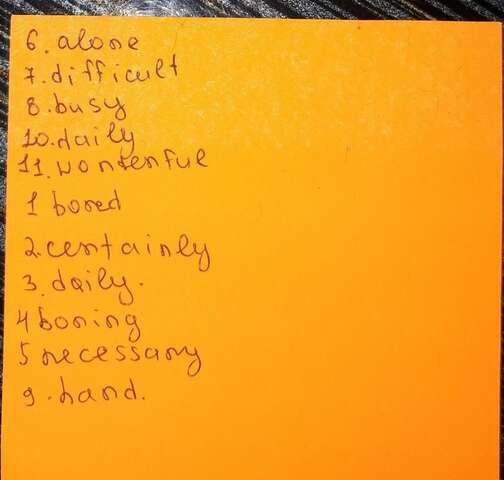 6. alone
7. difficult
8. busy
10. daily
11. wonterful
1 bored
2. certainly
3. daily.
4 boring
5 necessary
9. hard.